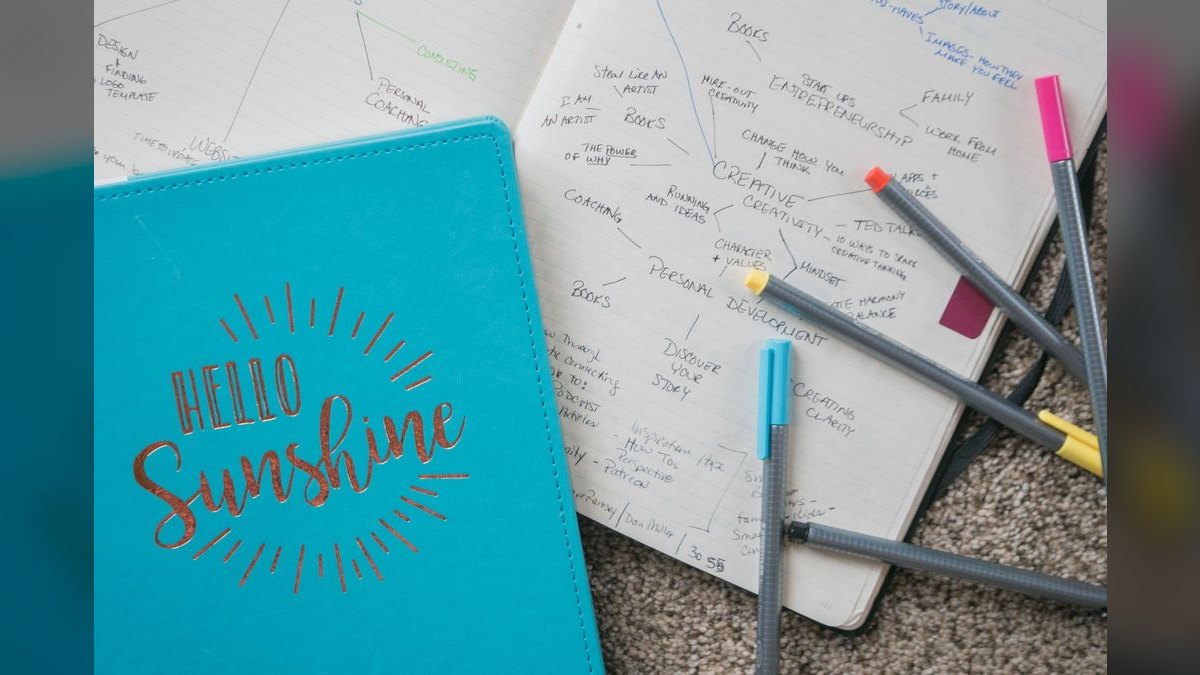 HELLO
Sunshine
DESIGN
+
FINDING
LOGO
TEMPLATE
CONSULTING
PERSONAL
COACHING
TIME TO UPDATE
BOOKS
STORY/ABOUT
IMAGES - HOW THEY
MAKE YOU FEEL
STEAL LIKE AN
ARTIST
I AM
AN ARTIST
BOOKS
THE POWER
OF WHY
HIRE-OUT
CREATIVITY
START UPS
ENTREPRENEURSHIP
FAMILY
WORK FROM
HOME
CHANGE HOW YOU
THINK
CREATIVE
CREATIVITY
APPS +
RUNNING
AND IDEAS
COACHING
TED TALKS
10 WAYS TO SPARK
CREATIVE THINKING
CHARACTER
+ VALUES
MINDSET
HARMONY
BALANCE
PERSONAL DEVELOPMENT
BOOKS
DISCOVER
YOUR
STORY
CREATING
CLARITY
Through
connecting
to:
PODCAST
Inspiration Hope
- How Tos
Perspective
- Patreon
Ramsey / Don Miller
30 55